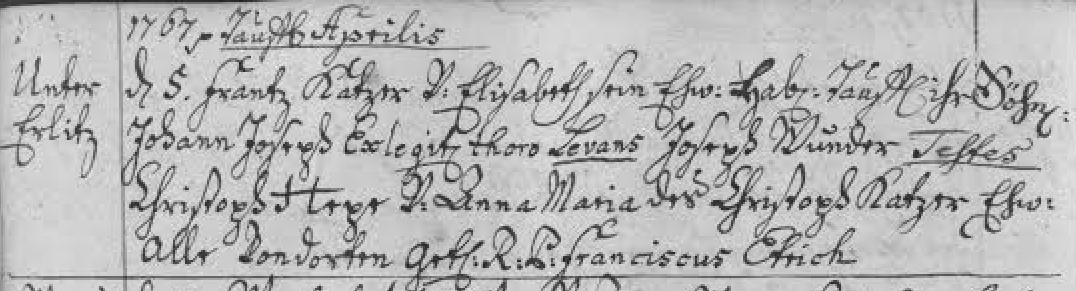 1767 Tauff Aprilis
Unter Erlitz
d 5. Frantz Katzer V: Elisabeth sein Ehw: Hab: Tauff ihr Söhn:
Johann Joseph Ex legit: thoro Levans Joseph Wunder Testes
Christoph V: Anna Maria des Christoph Katzer Ehw:
Alle von dorten R: P: Franciscus Etrich